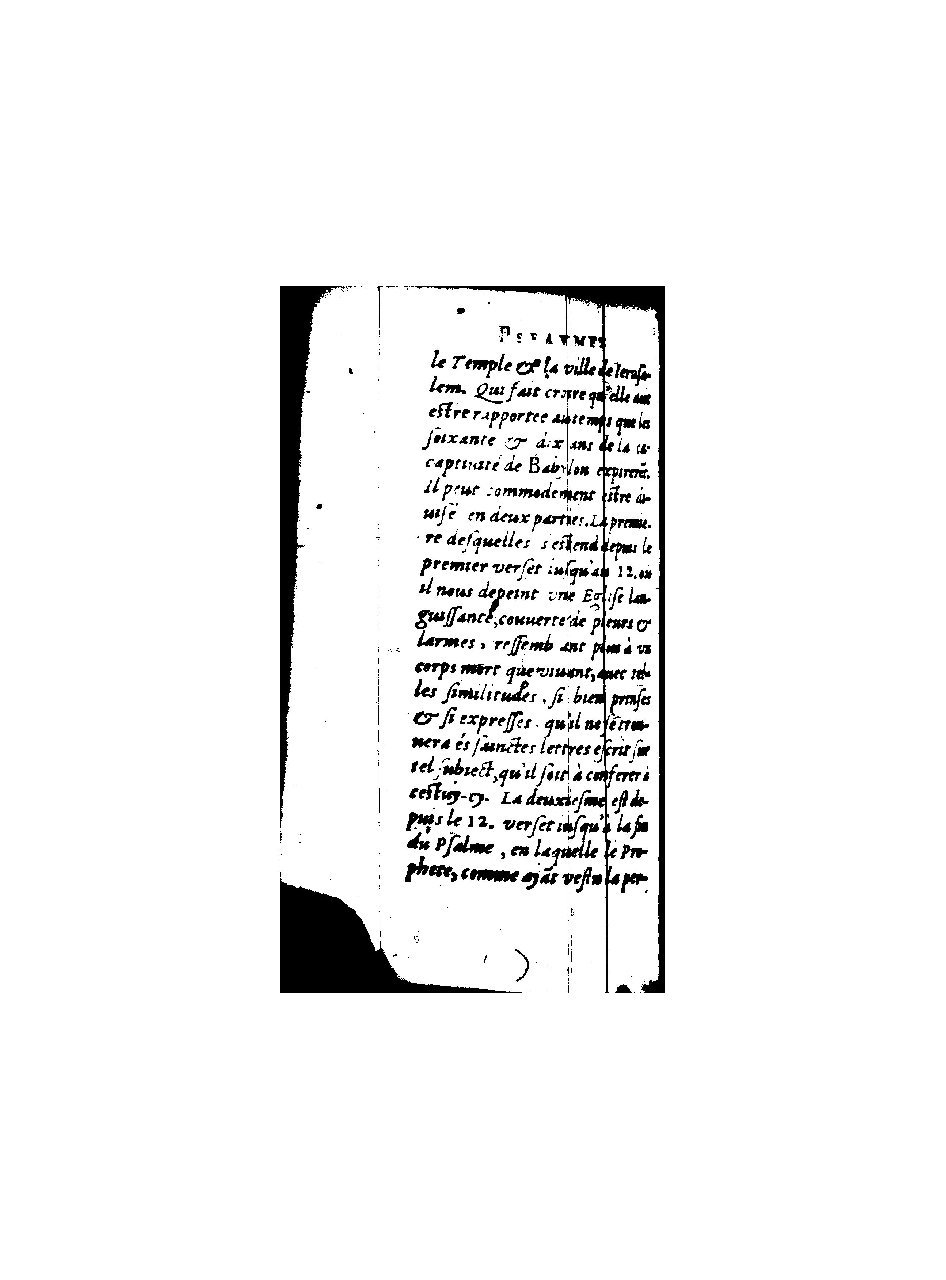 PSEAVMES
le Temple & la ville de Ierusa-
lem. Qui fait croire qu'elle doit
estre rapportee au temps que les
soixante & dix ans de la
captiuité de Babylon expirerēt.
Il peut commodement estre di-
uisé en deux parties. La premie-
re desquelles s'estend depuis le
premier verset iusqu'au 12. ou
il nous depeint vne Eglise lan-
guissante, couuerte de pleurs &
larmes, ressemblant plus à vn
corps mort que viuant, auec tel-
les similitudes, si bien prinses
& si expresses, qu'il ne se trou-
uera és sainctes lettres escrit sur
tel subiect, qu'il soit à conferer à
cestuy-cy. La deuxiesme est de-
puis le 12. verset iusqu'à la fin
du Psalme, en laquelle le Pro-
phete, comme ayāt vestu la per-